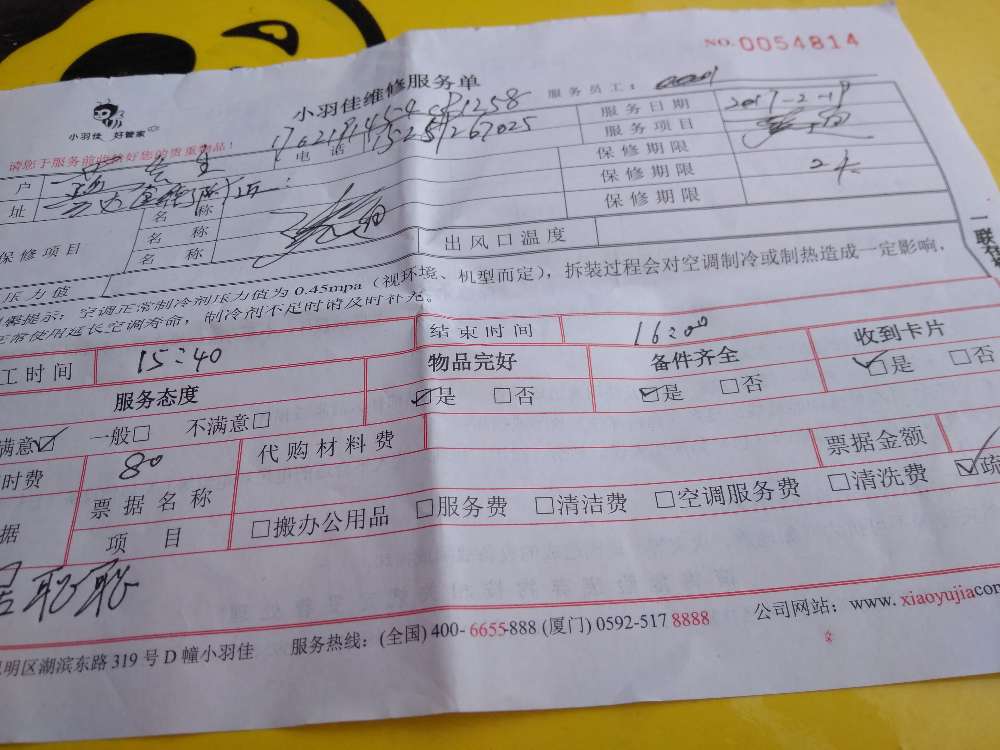 NO.0054814
小羽佳维修服务单
服务员工：
小羽佳 好管家
请您于服务前收好您的贵重物品！
户
电话
服务日期 2017-2-19
址
服务项目
保修期限
保修项目
名称
保修期限
名称
保修期限
名称
出风口温度
压力值
提示：空调正常制冷剂压力值为0.45mpa（视环境、机型而定），拆装过程会对空调制冷或制热造成一定影响，
使用延长空调寿命，制冷剂不足时请及时补充。
工时间 15:40 结束时间 16:00
服务态度 物品完好 备件齐全 收到卡片
满意☑ 一般□ 不满意□ ☑是 □否 ☑是 □否 ☑是 □否
时费 80 代购材料费 票据金额
据 票据名称
项目 □搬办公用品 □服务费 □清洁费 □空调服务费 □清洗费 ☑疏
聪聪
明区湖滨东路319号D幢小羽佳 服务热线：(全国) 400-6655-888 (厦门) 0592-517 8888 公司网站：www.xiaoyujia.com